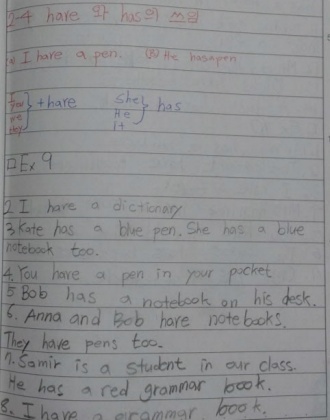 2-4 have 와 has의 쓰임
I have a pen. He has a pen
You } + have She } has
we He
they It
□ Ex 9
2 I have a dictionary
3. Kate has a blue pen. She has a blue
notebook too.
4. You have a pen in your pocket
5 Bob has a notebook on his desk.
6. Anna and Bob have notebooks.
They have pens too.
7. Samir is a student in our class.
He has a red grammar book.
8. I have a grammar book.